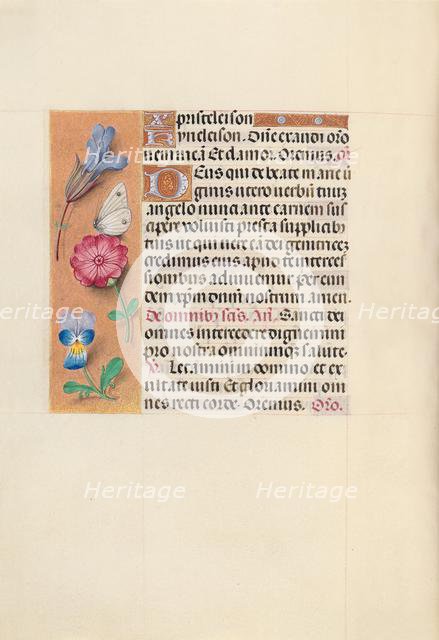 xpristeleison
kyrieleison. Dñe exaudi oro
nem meã Et clamor. Oremus. Oᵒ
Deus qui de beate marie ũ
ginis utero uerbũ tuũz
angelo nunciante carnem sus
cipere voluisti presta supplicibꝰ
tuis ut qui vere eã dei genitricez
credimus eius apud te interces
sionibus adiuuemur per eun
dem xp̃m dñm nostrum amen.
De omnibꝰ sc̃is. Añ. Sancti dei
omnes intercedere dignemini
pro nostra omniumqz salute.
V. Letamini in domino et ex
ultate iusti Et gloriamini om
nes recti corde. Oremus. Oro.
Heritage
Heritage
Heritage
Heritage
Heritage
Heritage